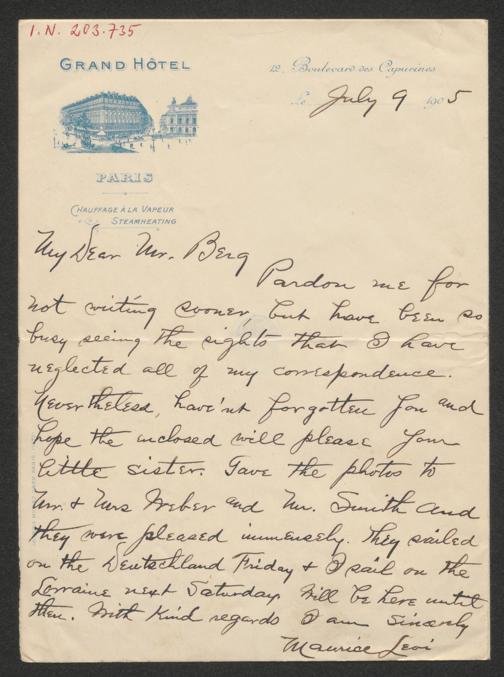 I.N. 203.735
GRAND HÔTEL
12, Boulevard des Capucines
Le July 9 1905
PARIS
CHAUFFAGE À LA VAPEUR
STEAMHEATING
My Dear Mr. Berg
Pardon me for
not writing sooner, but have been so
busy seeing the sights that I have
neglected all of my correspondence.
Nevertheless, have'nt forgotten you and
hope the enclosed will please your
little sister. Gave the photos to
Mr. & Mrs Weber and Mr. Smith and
they were pleased immensely. They sailed
on the Deutschland Friday & I sail on the
Lorraine next Saturday. Will be here until
then. With Kind regards I am Sincerely
Maurice Levi